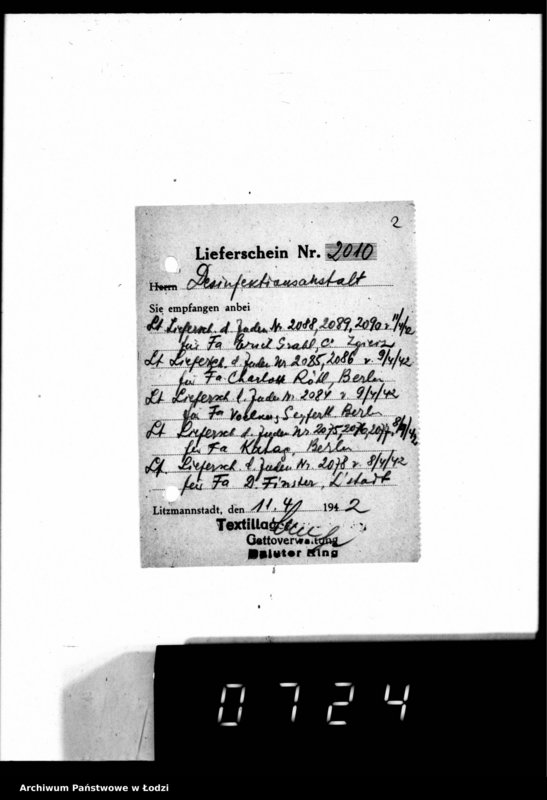 2
Lieferschein Nr. 2010
Herrn Desinfektionsanstalt
Sie empfangen anbei
Lt Liefersch. d. Juden Nr 2088, 2089, 2090 v. 11/4/42
für Fa Ernst
Lt Liefersch. d. Juden Nr. 2085, 2086 v. 9/4/42
für Fa Charlotte Röhl, Berlin
Lt Liefersch. d. Juden Nr. 2084 v. 9/4/42
für Fa Seyfert Berlin
Lt Liefersch d. Juden Nr. 2075, 2076, 2077 v.
für Fa Berlin
Lt Liefersch. d. Juden Nr. 2078 v. 8/4/42
für Fa D. Finster, L'stadt
Litzmannstadt, den 11.4. 194 2
Textillager
Gettoverwaltung
Baluter Ring
0724
Archiwum Państwowe w Łodzi